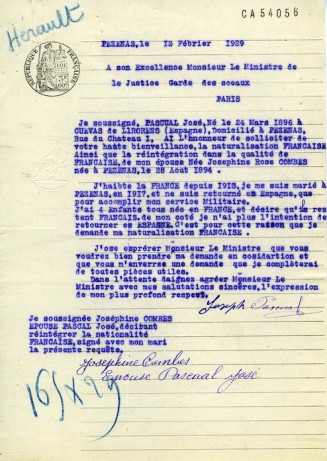 CA 54056
Hérault
REPUBLIQUE FRANCAISE
PEZENAS, le 13 Février 1929
A son Excellence Monsieur Le Ministre de
le Justice Garde des sceaux
PARIS
Je soussigné, PASCUAL José, Né le 24 Mars 1896 à
CUEVAS de (Espagne), Domicilié à PEZENAS,
Rue du Chateau I, AI L'hnonneur de solliciter de
votre haute bienveillance, la naturalisation FRANCAISE
Ainsi que la réintégration dans la qualité de
FRANCAISE, de mon épouse Née Joséphine Rose COMBES
née à PEZENAS, le 28 Aout 1894.
J'haibte la FRANCE depuis 1913, je me suis marié à
PEZENAS, en 1917, et ne suis retourné en Espagne, que
pour accomplir mon service Militaire.
J'ai 4 Enfants tous née en FRANCE, et désire qu'ils res
tent FRANCAIS. de mon coté je n'ai plus l'intention de
retourner es ESPAGNE. C'est pour cette raison que je
demande ma naturalisation FRANCAISE
J'ose esprérer Monsieur Le Ministre que vous
voudres bien prendre ma demande en cosidartion et
que vous n'enverrse une demande que je complèterai
de toutes pièces utiles.
Dans l'attente daignes agréer Monsieur Le
Ministre avec mes salutations sincères, l'expression
de mon plus profond respect.
Joseph Pascual
Je soussignée Joséphine COMBES
EPOUSE PASCAL José, désirant
réintégrer la nationalité
FRANCAISE, signé avec mon mari
la présente requête.
Josephine Combes
Epouse Pascual José
16 X 29